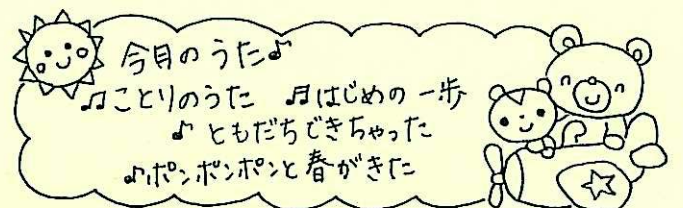 今月のうた♪
♫ことりのうた ♬はじめの一歩
♪ともだちできちゃった
♪ポンポンポンと春がきた